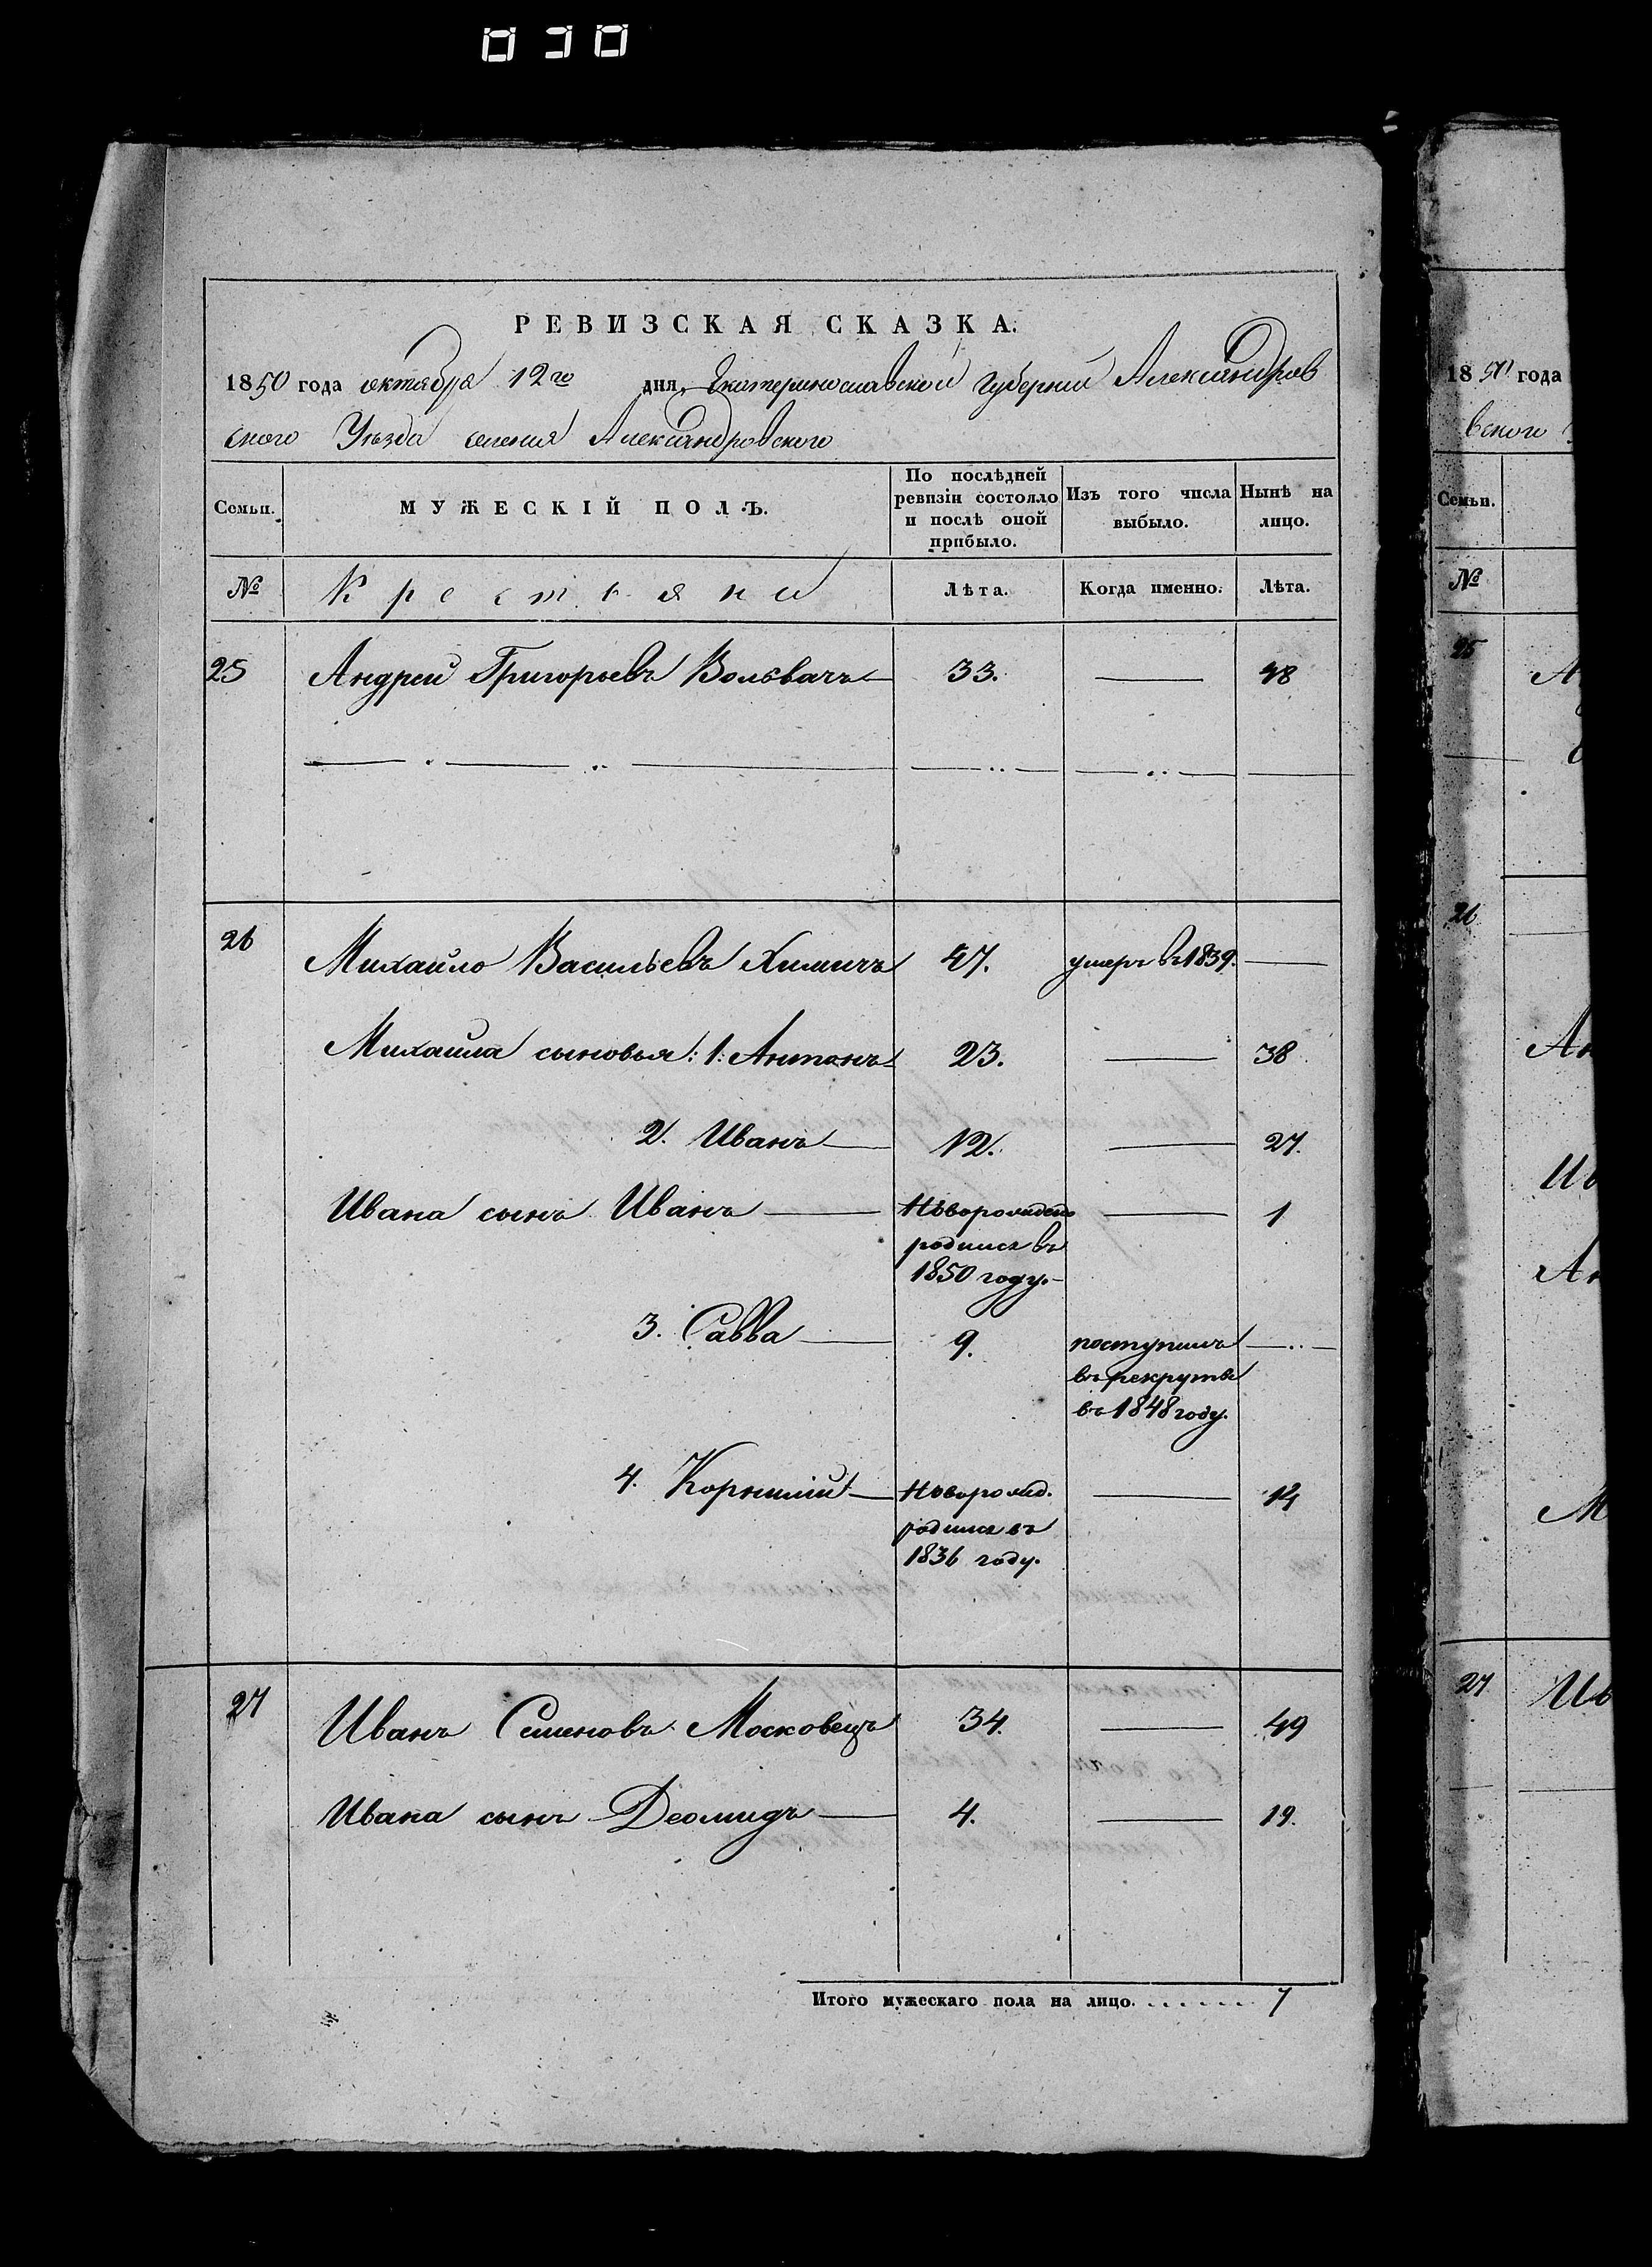 030
РЕВИЗСКАЯ СКАЗКА.
1850 года октября 12го дня, Екатеринославской Губернии Александров
ского Уезда селения Александровского
Семьи. МУЖЕСКІЙ ПОЛЪ. По послѣдней ревизіи состояло и послѣ оной прибыло. Изъ того числа выбыло. Нынѣ на лицо.
№ Крестьяни Лѣта. Когда именно. Лѣта.
25 Андрей Григорьевъ Вольвачъ 33. 48
26 Михайло Васильевъ Химичъ 47. умеръ въ 1839.
Михайла сыновья: 1. Антонъ 23. 38
2. Иванъ 12. 27.
Ивана сынъ Иванъ Новорожден 1
родился въ
1850 году.
3. Савва 9. поступилъ
въ рекруты
въ 1848 году.
4. Корнилий Новорожд. 14
родился въ
1836 году.
27 Иванъ Семеновъ Московецъ 34. 49
Ивана сынъ Деомидъ 4. 19.
Итого мужескаго пола на лицо. 7
1850 года
вского
Семьи.
№
25
26
Ан
Ив
Ан
М
27 Ив